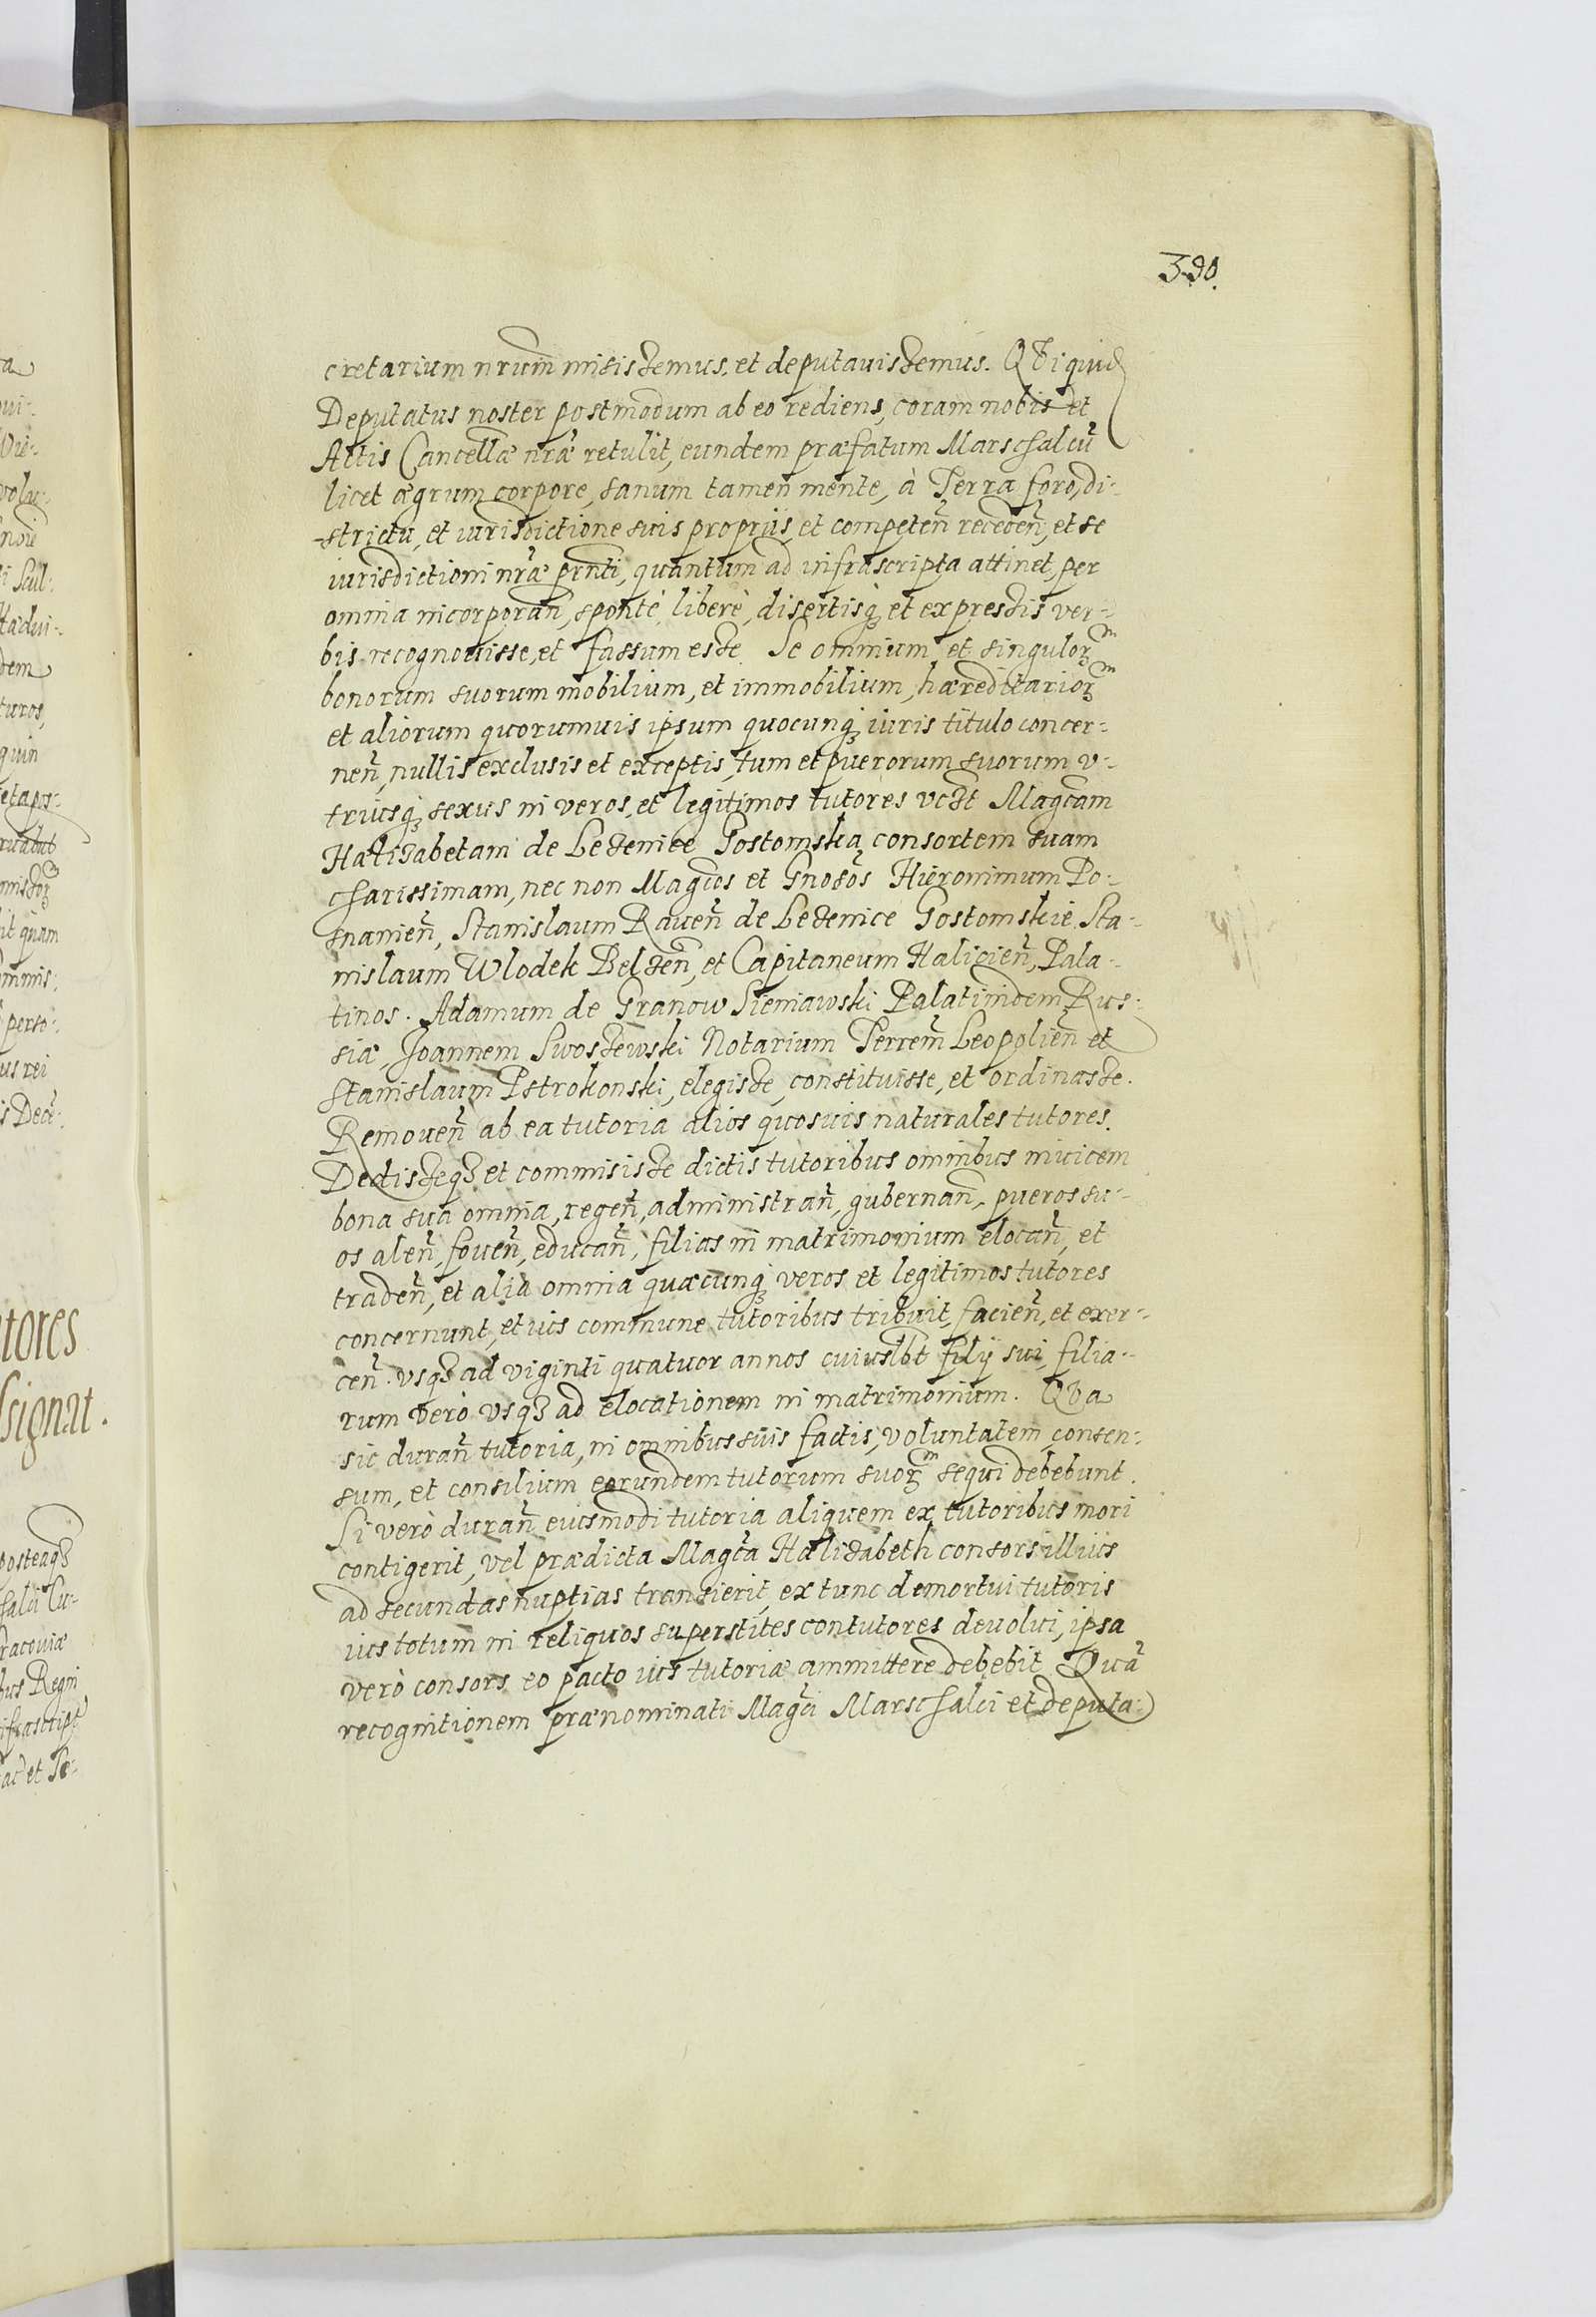 390.
cretarium nrum misissemus, et deputavissemus. Qui quid
Deputatus noster postmodum ab eo rediens, coram nobis et
Actis Cancellæ nræ retulit, eundem præfatum Marschalcũ
licet ægrum corpore, sanum tamen mente, à Terra foro, di-
strictu, et iurisdictione suis proprijs, et competeñ receden̄, et se
iurisdictioni nræ prnti, quantum ad infrascripta attinet, per
omnia incorporan̄, sponte, liberè, disertisq; et expressis ver-
bis recognouisse, et fassum esse. Se omnium et singuloꝝm
bonorum suorum mobilium, et immobilium, hæreditarioꝝm
et aliorum quorumuis ipsum quocunq; iuris titulo concer-
nen̄, nullis exclusis et exceptis, tum et puerorum suorum v-
triusq; sexus in veros, et legitimos tutores vczt Magcam
Halizabetam de Lezenice Gostomska consortem suam
charissimam, nec non Magcos et Gnosos Hieronimum Po-
snanien̄, Stanislaum Raven̄ de Lezenice Gostomskie, Sta-
nislaum Wlodek Belzen̄, et Capitaneum Halicien̄, Pala-
tinos. Adamum de Granow Sieniawski Palatinidem Rus-
siæ, Joannem Swoszewski Notarium Terrem Leopolien̄ et
Stanislaum Pstrokonski, elegisse, constituisse, et ordinasse.
Remouen̄ ab ea tutoria alios quosuis naturales tutores.
Dedisseq; et commisisse dictis tutoribus omnibus inuicem
bona sua omnia, regen̄, administran̄, gubernan̄, pueros su-
os alen̄, fouen̄, educan̄, filias in matrimonium elocan̄, et
traden̄, et alia omnia quæcunq; veros et legitimos tutores
concernunt, et ius commune tutoribus tribuit, facien̄, et exer-
cen̄. vsq; ad viginti quatuor annos cuiuslbt filij sui, filia-
rum verò vsq; ad elocationem in matrimonium. Qua
sic duran̄ tutoria, in omnibus suis factis, voluntatem, consen-
sum, et consilium eorundem tutorum suoꝝm sequi debebunt.
Si verò duran̄ eiusmodi tutoria aliquem ex tutoribus mori
contigerit, vel prædicta Magca Halizabeth consors illius
ad secundas nuptias transierit, ex tunc demortui tutoris
ius totum in reliquos superstites contutores deuolui, ipsa
verò consors eo pacto ius tutoriæ ammittere debebit. Quã
recognitionem prænominati Magci Marschalci et deputa-